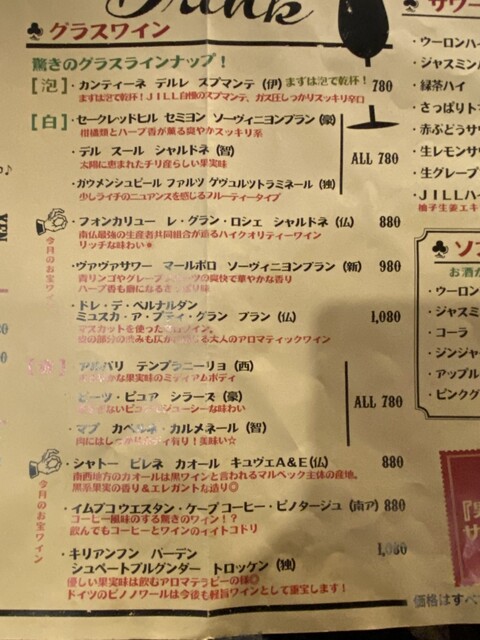 Drink
♣ グラスワイン
驚きのグラスラインナップ！
[泡]・カンティーネ デルレ スプマンテ (伊) まずは泡で乾杯！ 780
まずは泡で乾杯！JILL自慢のスプマンテ、ガス圧しっかりスッキリ辛口
[白]・セークレッドヒル セミヨン ソーヴィニヨンブラン (豪)
柑橘類とハーブ香が薫る爽やかスッキリ系
・デル スール シャルドネ (智)
太陽に恵まれたチリ産らしい果実味
ALL 780
・ガウメンシュピール ファルツ ゲヴュルツトラミネール (独)
少しライチのニュアンスを感じるフルーティータイプ
今月のお宝ワイン
・フォンカリュー レ・グラン・ロシェ シャルドネ (仏) 880
南仏最強の生産者共同組合が造るハイクオリティーワイン
リッチな味わい
・ヴァヴァサワー マールボロ ソーヴィニヨンブラン (新) 980
青リンゴやグレープフルーツの爽快で華やかな香り
ハーブ香も
・ドレ・デ・ペルナルダン
ミュスカ・ア・プティ・グラン ブラン (仏) 1,080
マスカットを使った
大人のアロマティックワイン
・アルバリ テンプラニーリョ (西)
果実味のミディアムボディ
・ピーツ・ピュア シラーズ (豪)
ジューシーな味わい
ALL 780
・マプ カベルネ・カルメネール (智)
肉にはしっかり 有り！美味い☆
今月のお宝ワイン
・シャトー ピレネ カオール キュヴェA&E(仏) 880
南西地方のカオールは黒ワインと言われるマルベック主体の産地。
黒系果実の香り＆エレガントな造り◎
・イムプコ ウエスタン・ケープ コーヒー・ピノタージュ (南ア) 880
コーヒー風味のする驚きのワイン！？
飲んでもコーヒーとワインのイイトコドリ
・キリアンフン パーデン 1,080
シュペートブルグンダー トロッケン (独)
優しい果実味は飲むアロマテラピーの様◎
ドイツのピノノワールは今後も軽旨ワインとして重宝します！
♣ サワー
・ウーロンハイ
・ジャスミン
・緑茶ハイ
・さっぱりト
・赤ぶどうサワ
・生レモンサワ
・生グレープ
・JILLハイ
柚子生姜エキ
♣ ソフ
お酒が
・ウーロン
・ジャスミ
・コーラ
・ジンジャ
・アップル
・ピンクグ
価格はすべ
YEN